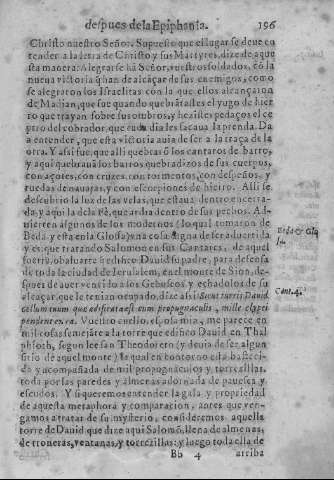 despues de la Epiphania. 196
Christo nuestro Señor. Supuesto que el lugar se deue en
tender a la letra de Christo y sus Martyres, dize de aque
sta manera: Alegrarse há Señor vuestros soldados, có la
nueua victoria q̃ han de alcáçar de sus enemigos, como
se alegraron los Israelitas con la que ellos alcançaron
de Madian, que fue quando quebrãtastes el yugo de hier
ro que trayan sobre sus ombros, y hezistes pedaços el ce
ptro del cobrador, que cada dia les sacaua la prenda. Da
a entender, que esta victoria auia de ser a la traça de la
otra. Y assi fue, que alli quebrarõ los cantaros de barro,
y aqui quebrauã los barros quebradizos de sus cuerpos,
con açotes, con cruzes, con tormentos, con despeños, y
ruedas de nauajas, y con escorpiones de hierro. Alli se
descubrio la luz de las velas, que estaua dentro encerra-
da, y aqui la de la Fè, que ardia dentro de sus pechos. Ad-
uierten algunos de los modernos (lo qual tomaron de
Beda, y està en la Glosa) vna cosa digna de ser aduertida
y es que tratando Salomon en sus Cantares, de aquel
fuerte, o baluarte se edificò Dauid su padre, para defensa
de toda la ciudad de Ierusalem, en el monte de Sion, des-
pues de auer vencido a los Gebuseos y echadolos de su
alcaçar, que le tenian ocupado, dize assi: Sicut turris Dauid
collum tuum que ædificata est cum propugnaculis, mille clypei
pendent ex ea. Vuestro cuello, esposa mia, me parece en
mil cosas semejàte a la torre que edifico Dauid en Thal
phioch, segun lee san Theodoreto (y deuia de ser algun
sitio de aquel monte) la qual en contorno està basteci-
da y acompañada de mil propugnaculos y torrezillas,
toda por las paredes y almenas adornada de paueses y
escudos. Y si queremos entender la gala y propiedad
de aquesta metaphora y comparacion, antes que ven-
gamos a tratar de su mysterio, consideremos aquella
torre de Dauid que dize aqui Salomõ, llena de almenas,
de troneras, ventanas, y torrezillas; y luego toda ella de
Bb 4 arriba
Beda & Glo
sa.
Cant. 4.